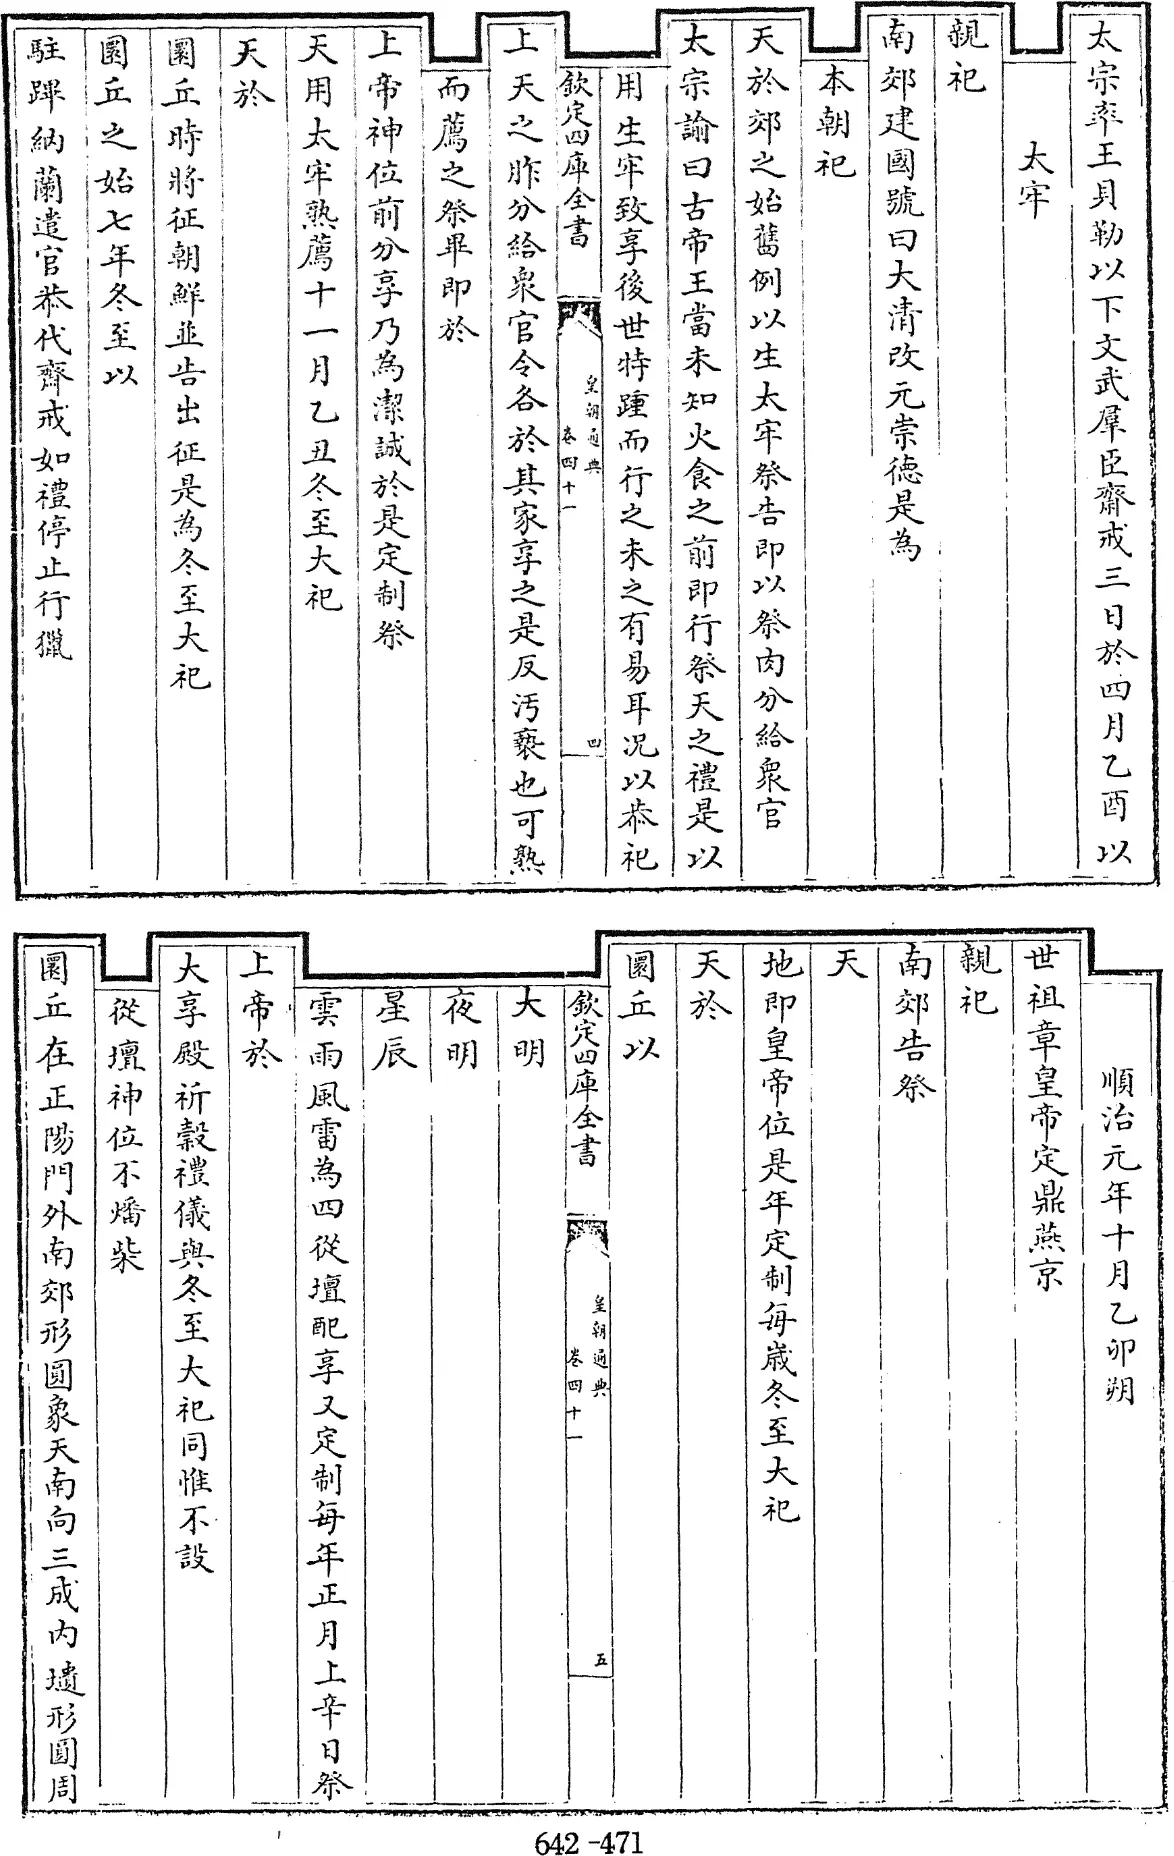 太宗率王貝勒以下文武羣臣齋戒三日於四月乙酉以
太牢
親祀
南郊建國號曰大清改元崇德是為
本朝祀
天於郊之始舊例以生太牢祭告即以祭肉分給衆官
太宗諭曰古帝王當未知火食之前即行祭天之禮是以
用生牢致享後世特踵而行之未之有易耳况以恭祀
欽定四庫全書
皇朝通典
卷四十一
四
上天之胙分給衆官令各於其家享之是反汚褻也可熟
而薦之祭畢即於
上帝神位前分享乃為潔誠於是定制祭
天用太牢熟薦十一月乙丑冬至大祀
天於
圜丘時將征朝鮮並告出征是為冬至大祀
圜丘之始七年冬至以
駐蹕納蘭遣官恭代齋戒如禮停止行獵
順治元年十月乙卯朔
世祖章皇帝定鼎燕京
親祀
南郊告祭
天
地即皇帝位是年定制每歳冬至大祀
天於
圜丘以
欽定四庫全書
皇朝通典
卷四十一
五
大明
夜明
星辰
雲雨風雷為四從壇配享又定制每年正月上辛日祭
上帝於
大享殿祈穀禮儀與冬至大祀同惟不設
從壇神位不燔柴
圜丘在正陽門外南郊形圓象天南向三成内壝形圓周
642-471